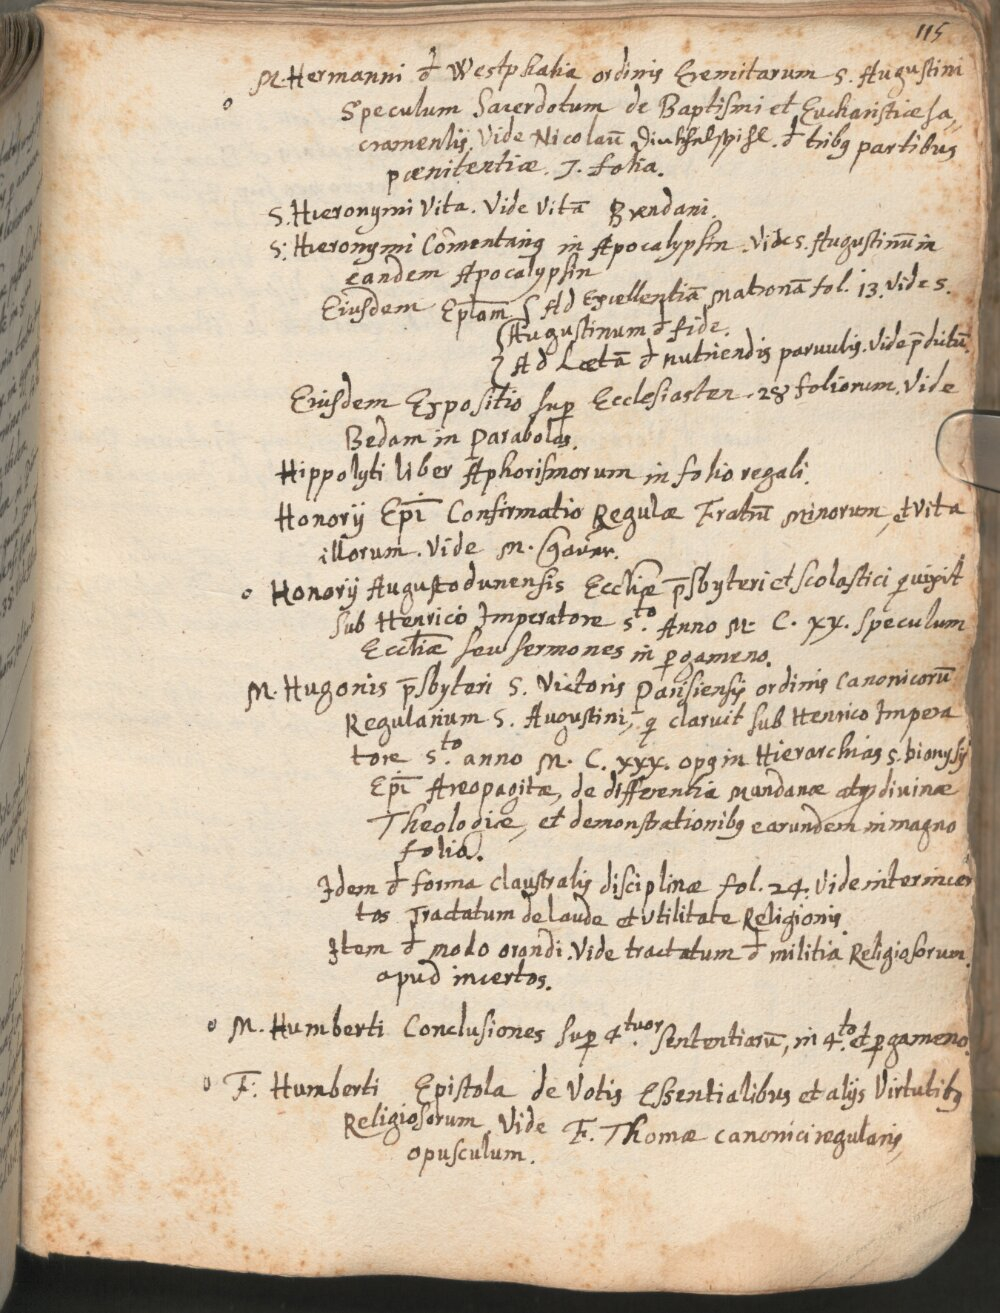 115
M. Hermanni đ Westphalia ordinis Eremitarum S. Augustini
Speculum Sacerdotum de Baptismi et Eucharisticæ sa,,
cramentis, Vide Nicolaũ đ tribꝫ partibus
pœnitentiæ. 7. folia.
S. Hieronymi Vita. Vide Vitã Brendani.
S. Hieronymi Com̃entariꝫ in Apocalypsin. Vide S. Augustinũ in
eandem Apocalypsin
Eiusdem Eplãm { Ad Excellentiã Matronã fol. 13. Vide S.
Augustinum đ fide.
Ad Lætã đ nutriendis paruulis. Vide p̃dictũ.
Eiusdem Expositio sup Ecclesiasten. 28 foliorum. Vide
Bedam in Parabolas.
Hippolyti liber Aphorismorum in folio regali.
Honorij Epĩ Confirmatio Regulæ Fratrũ Minorum, et Vita
illorum. Vide M.
Honorij Augustodunensis Eccliæ p̃sbyteri et scolastici qui vixit
sub Henrico Imperatore 5.to Anno M. C. XX. Speculum
Eccliæ seu sermones in pgameno.
M. Hugonis p̃sbyteri S. Victoris Parisiensis ordinis Canonicorũ
Regularium S. Augustini, q̃ claruit sub Henrico Impera
tore 5.to anno M. C. XXX. opꝫ in Hierarchias S. Dionysij
Epĩ Areopagitæ, de differentia Mundanæ atqꝫ divinæ
Theologiæ, et demonstrationibꝫ earundem in magno
folio.
Idem đ forma claustralis disciplinæ fol. 24. Vide inter incer
tos Tractatum de laude et vtilitate Religionis.
Item đ modo orandi. Vide tractatum đ militia Religiosorum.
apud incertos.
M. Humberti Conclusiones sup 4.tuor sententiarũ, in 4.to et pgameno.
F. Humberti Epistola de Votis Essentialibus et alijs Virtutibꝫ
Religiosorum Vide F. Thomæ canonici regularis,
opusculum.